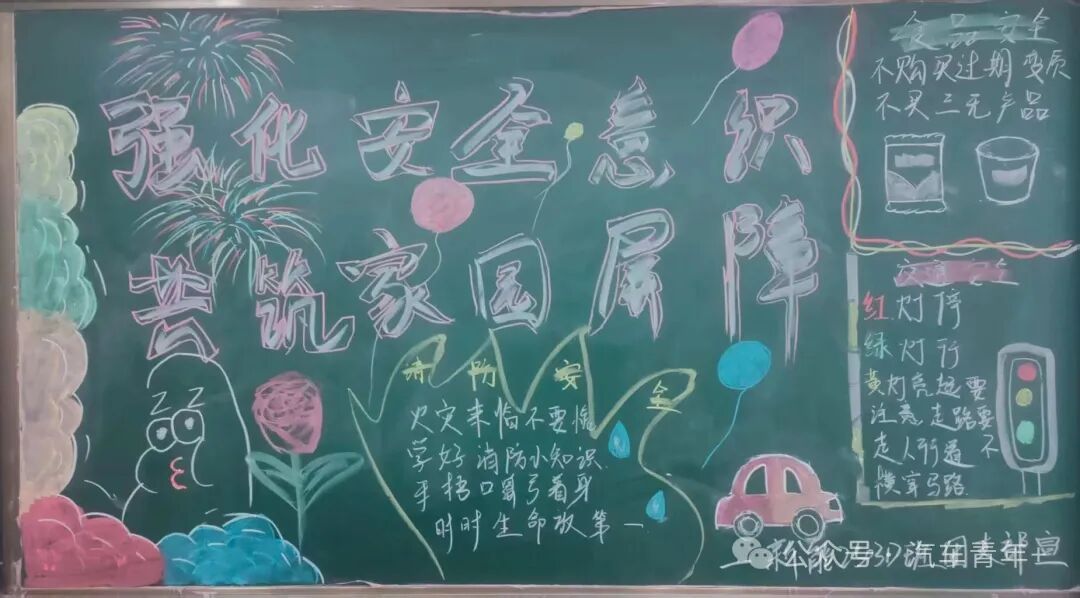 强化安全意识
共筑家国屏障
食品安全
不购买过期变质
不买三无产品
交通安全
红灯停
绿灯行
黄灯亮起要
注意走路要
走人行道 不
横穿马路
消防安全
火灾来临不要慌
学好消防小知识
手捂口鼻弓着身
时时生命放第一
公众号·汽车青年士
宣